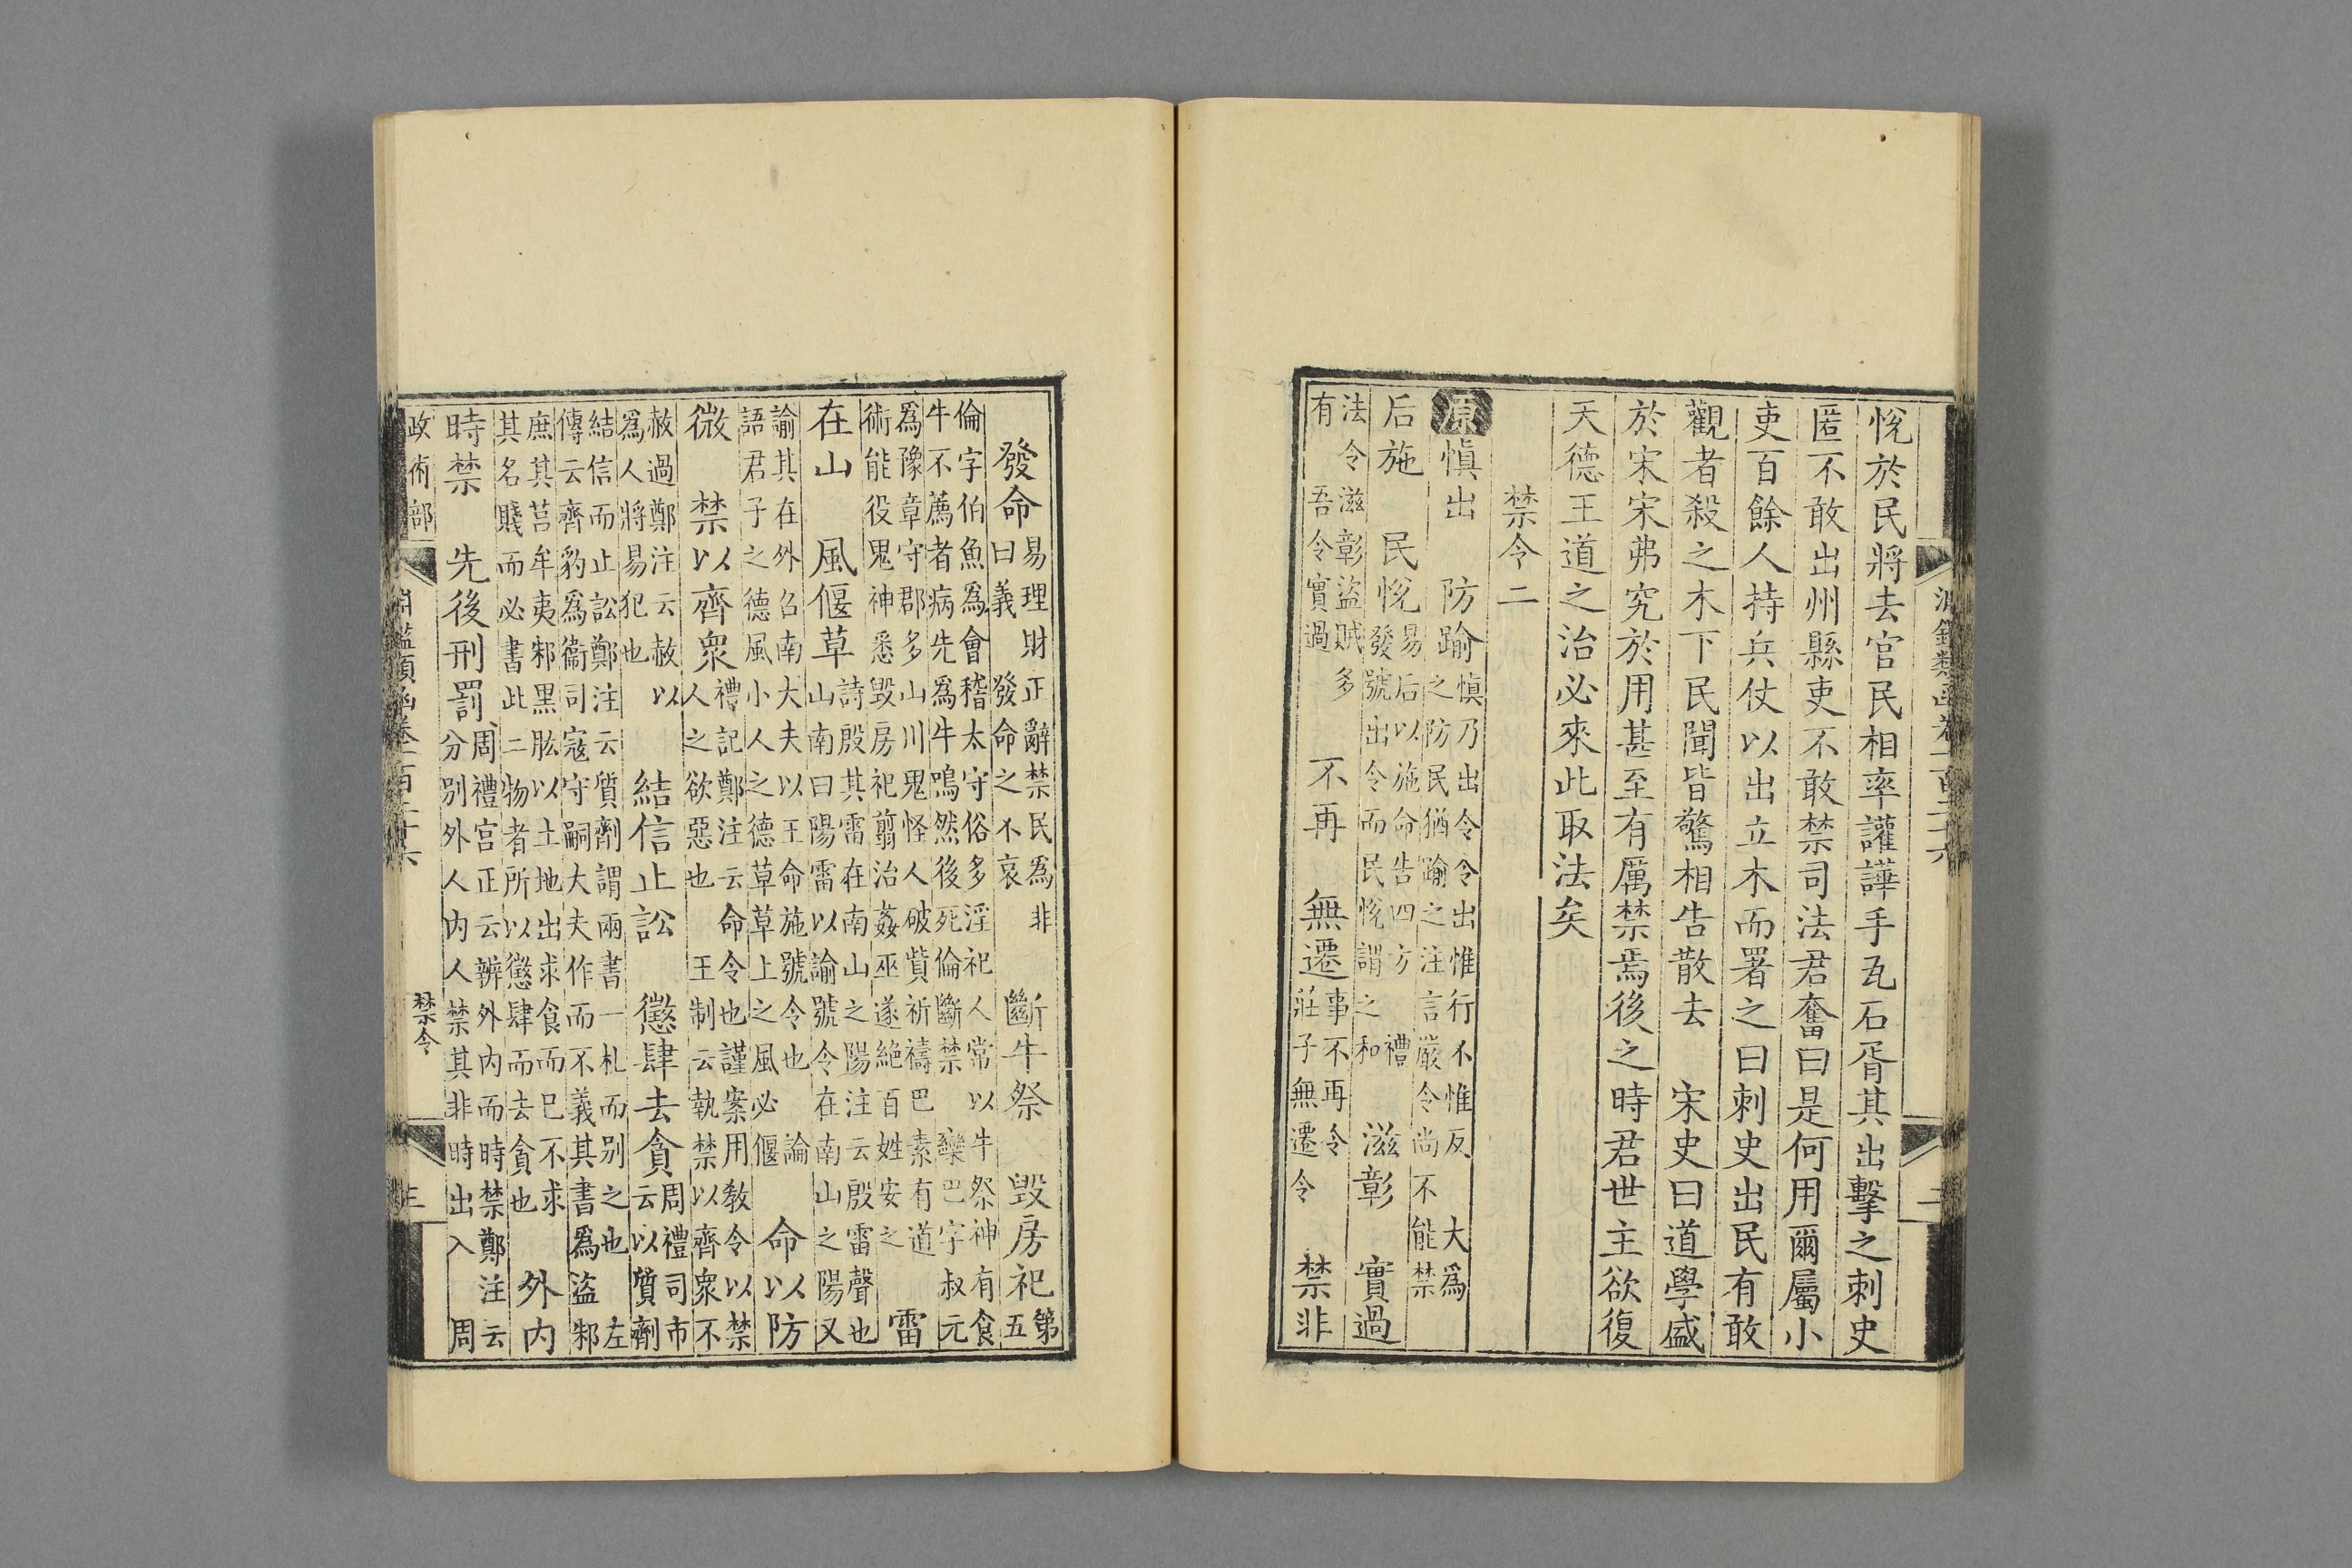 淵鑑類函卷一百二十六 二
悅於民將去官民相率讙譁手瓦石胥其出擊之刺史
匿不敢出州縣吏不敢禁司法君奮曰是何用爾屬小
吏百餘人持兵仗以出立木而署之曰刺史出民有敢
觀者殺之木下民聞皆驚相告散去 宋史曰道學盛
於宋宋弗究於用甚至有厲禁焉後之時君世主欲復
天德王道之治必來此取法矣
禁令二
原慎出 防踰
慎乃出令令出惟行不惟反 大爲
之防民猶踰之注言嚴令尚不能禁
后施 民悅
易后以施命告四方 禮
發號出令而民悅謂之和
滋彰 實過
法令滋彰盜賊多
有 吾令實過
不再 無遷
事不再令
莊子無遷令
禁非
發命
易理財正辭禁民爲非
曰義 發命之不哀
斷牛祭 毀房祀
第
五
倫字伯魚爲會稽太守俗多淫祀人常以牛祭神有食
牛不薦者病先爲牛鳴然後死倫斷禁 欒巴字叔元
爲豫章守郡多山川鬼怪人破貲祈禱巴素有道
術能役鬼神悉毀房祀翦治姦巫遂絕百姓安之
雷
在山 風偃草
詩殷其雷在南山之陽注云殷雷聲也
山南曰陽雷以諭號令在南山之陽又
諭其在外召南大夫以王命施號令也 論
語君子之德風小人之德草草上之風必偃
命以防
微 禁以齊眾
禮記鄭注云命令也謹案用教令以禁
人之欲惡也 王制云執禁以齊眾不
赦過鄭注云赦以
爲人將易犯也
結信止訟 懲肆去貪
周禮司市
云以質劑
結信而止訟鄭注云質劑謂兩書一札而別之也 左
傳云齊豹爲衞司寇守嗣大夫作而不義其書爲盜 邾
庶其莒牟夷邾黑肱以土地出求食而已不求
其名賤而必書此二物者所以懲肆而去貪也
外內
時禁 先後刑罰
周禮宮正云辨外內而時禁鄭注云
分別外人內人禁其非時出入 周
政術部 淵鑑類函卷一百二十六 禁令 三